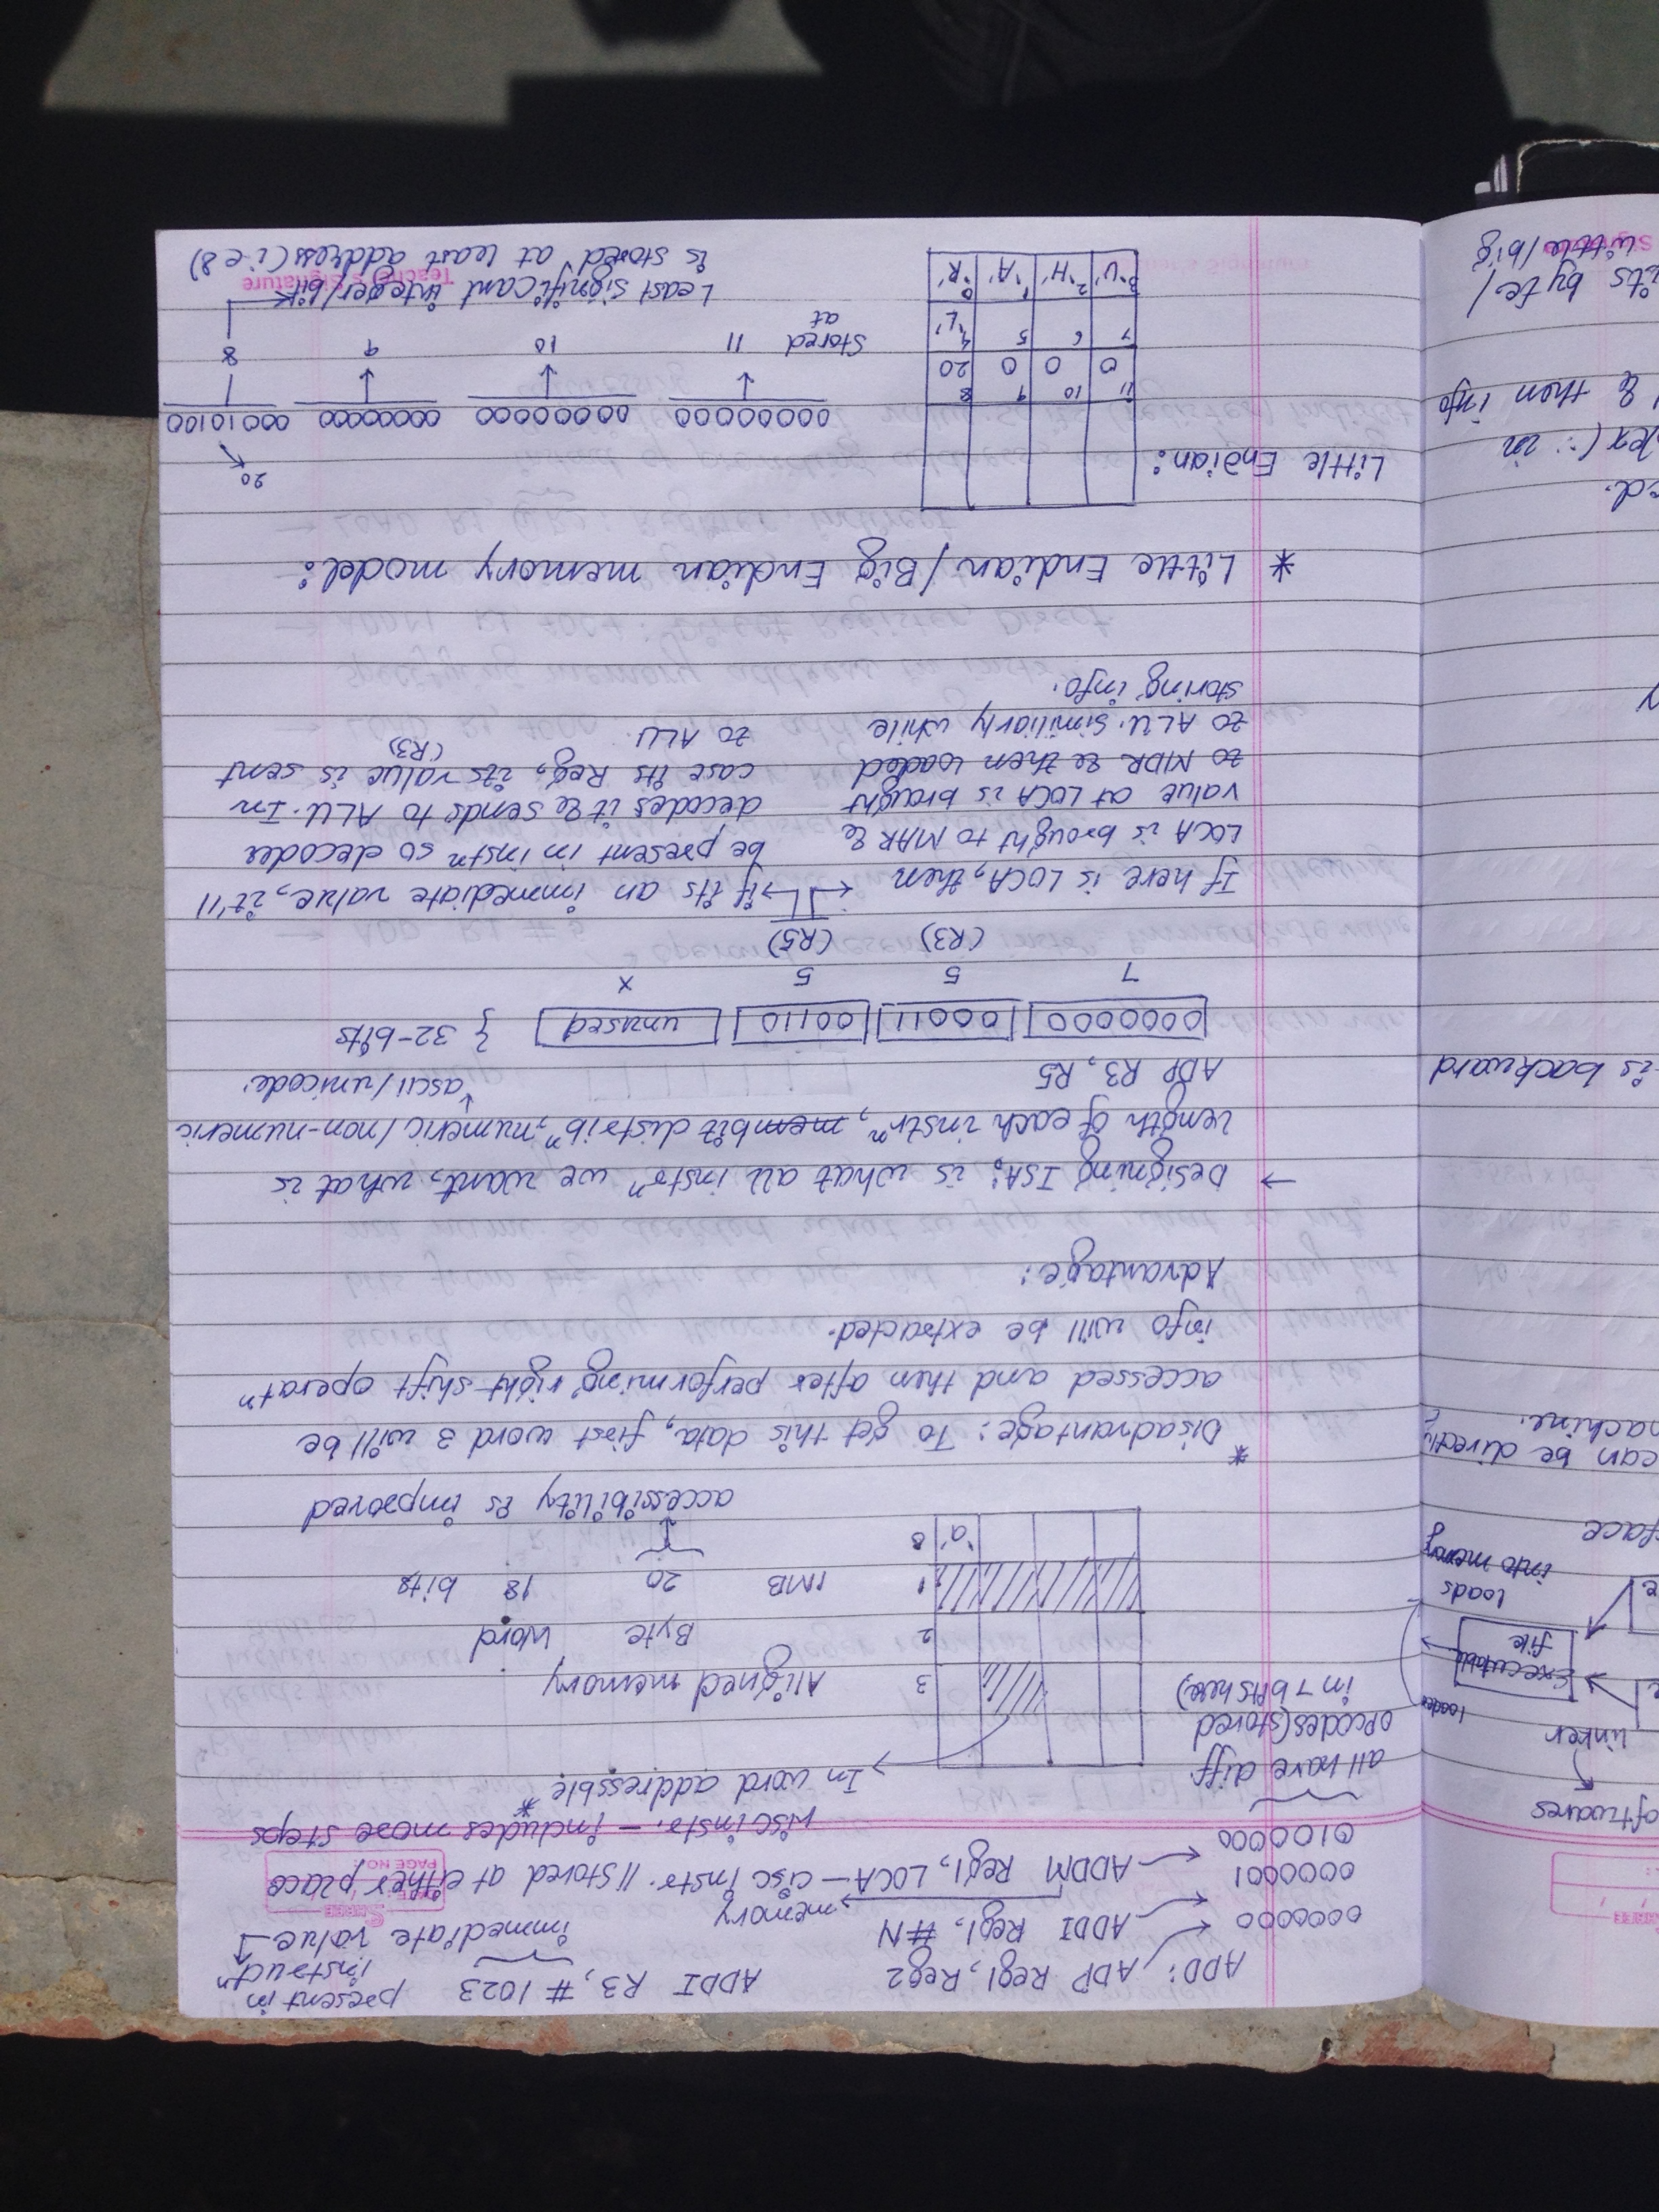 oftwares
linker
loader
Executable
file
loads
into memory
face
can be directly
machine.
is backward
ed.
lex (∵ in
& then info
its byte/
little/big
ADD: ADP Reg1, Reg2
ADDI R3, #1023 present in
instructⁿ
immediate value
0000000
ADDI Reg1, #N
memory
0000001
ADDM Reg1, LOCA — cisc instr. // stored at either place
0100000
risc instr. — includes more steps
SHREE
PAGE NO.:
all have diff.
opcodes (stored
in 7 bits here)
In word addressble *
3
2
1
'a' 0
Aligned memory
Byte Word
1MB 20 18 bits
accessibility is improved
* Disadvantage: To get this data, first word 3 will be
accessed and then after performing right shift operatⁿ
info will be extracted.
Advantage:
→ Designing ISA: is what all instrⁿ we want, what is
length of each instrⁿ, mem bit distribⁿ, numeric/non-numeric
ascii/unicode.
ADP R3, R5
0000000 00011 00110 unused } 32-bits
7 5 5 x
(R3) (R5)
If here is LOCA, then
LOCA is brought to MAR &
value at LOCA is brought
to MDR & then loaded
to ALU. Similiarly while
storing info.
if its an immediate value, it'll
be present in instⁿ so decoder
decodes it & sends to ALU. In
case its Reg, its value is sent
(R3)
to ALU.
* Little Endian/Big Endian memory model:
Little Endian:
11 10 9 8
0 0 0 20
7 6 5 4
'L'
3 'U' 2 'H' 1 'A' 0 'R'
20
00000000 00000000 0000000 00010100
Stored 11 10 9 8
at
Least significant integer/bit
is stored at least address (i e 8)
Teacher's Signature